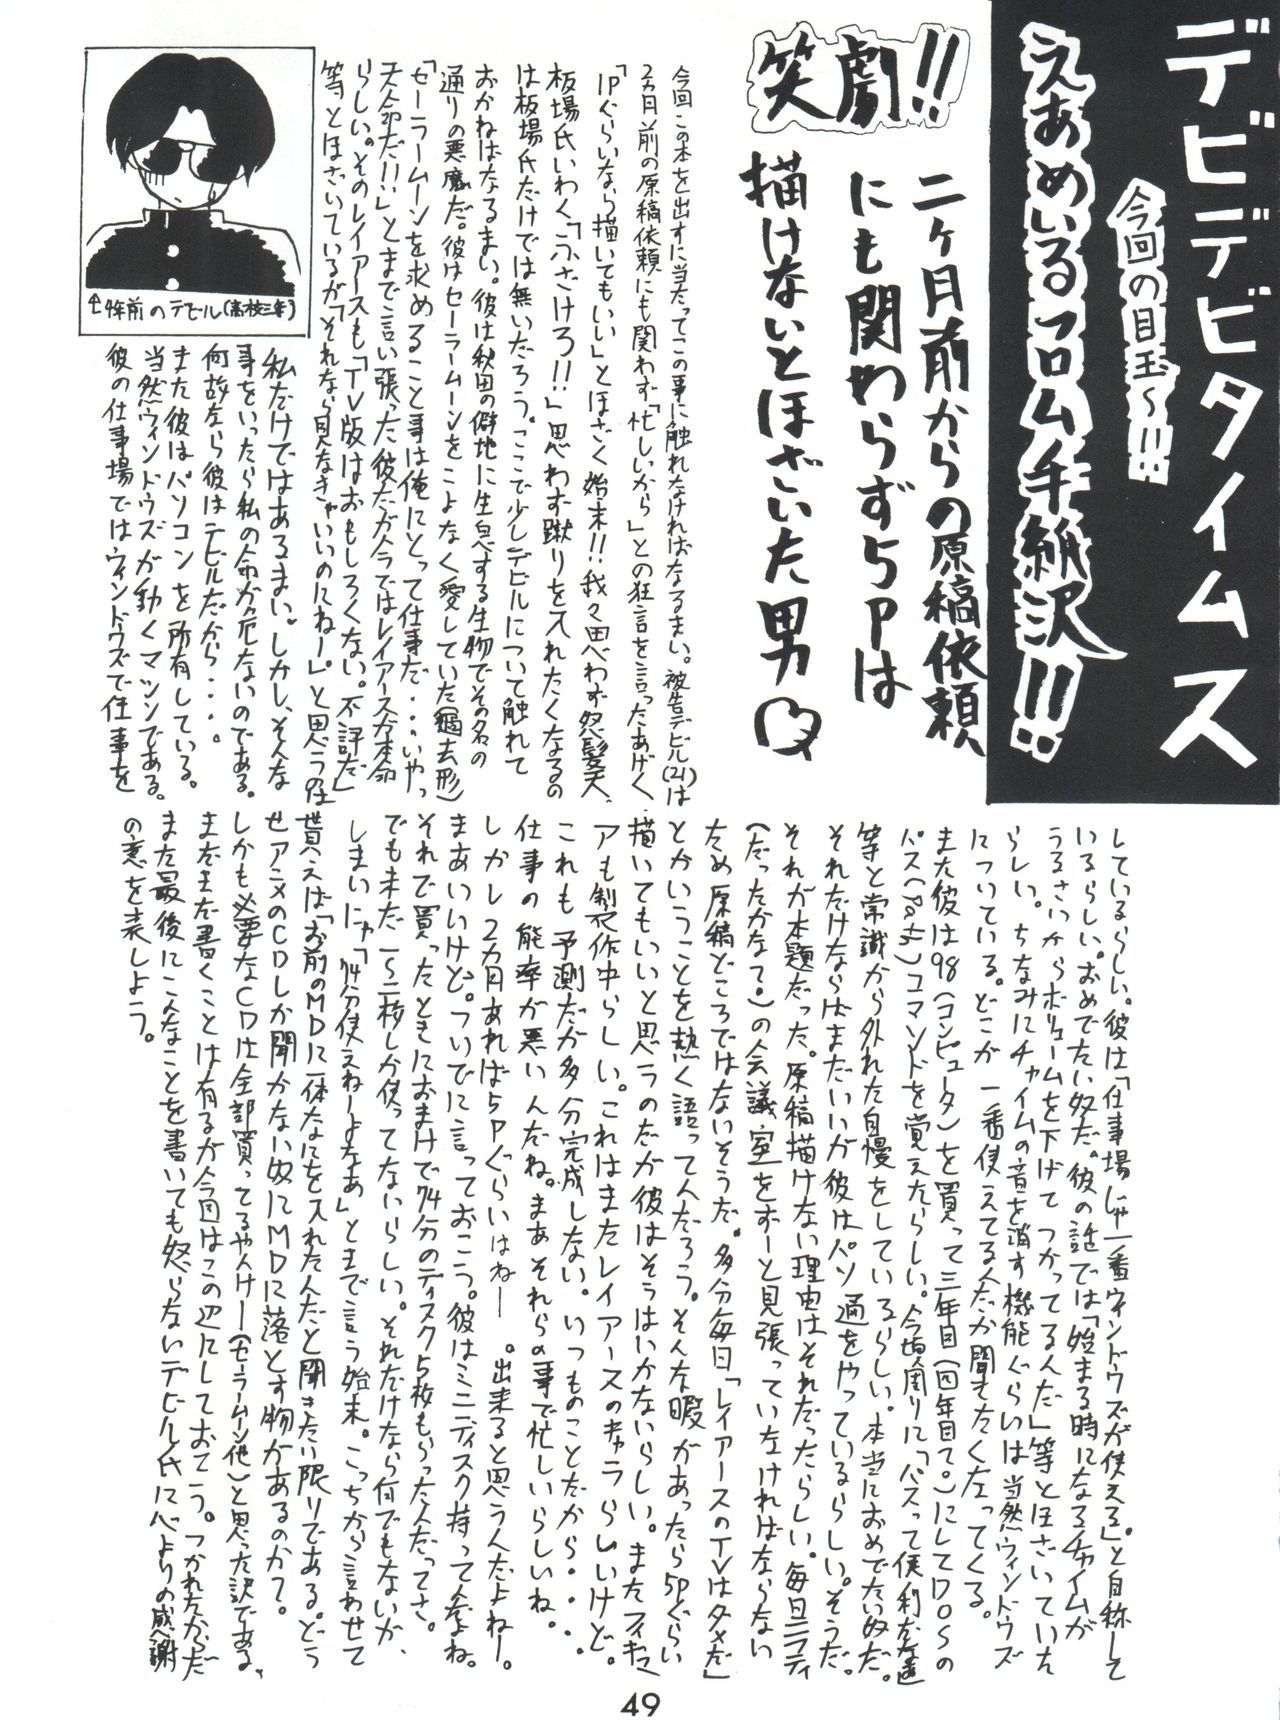 デビデビタイムス
今回の目玉〜!!
えあめいるフロム手納沢!!
笑劇!!
二ヶ月前からの原稿依頼
にも関わらず5Pは
描けないとほざいた男
今回この本を出すに当たってこの事に触れなければなるまい。被告デビル(21)は
2ヵ月前の原稿依頼にも関わず「忙しいから」との狂言を言ったあげく
「1Pぐらいなら描いてもいい」とほざく始末!!我々思わず怒髪天、
板場氏いわく「ふざけろ!!」思わず蹴りを入れたくなるの
は板場氏だけでは無いだろう。ここで少しデビルについて触れて
おかねばなるまい。彼は秋田の僻地に生息する生物でその名の
通りの悪魔だ。彼はセーラームーンをこよなく愛していた(過去形)
「セーラームーンを求めること事は俺にとって仕事だ・・・いやっ
天命だ!!」とまで言い張った彼だが今ではレイアースが本命
らしい。そのレイアースも「TV版はおもしろくない。不評だ」
等とほざいているが「それなら見なきゃいいのにねー」と思うのは
↑4年前のデビル(高校三年)
私だけではあるまい。しかし、そんな
事をいったら私の命が危ないのである。
何故なら彼はデビルだから・・・。
また彼はパソコンを所有している。
当然ウィンドウズが動くマッシンである。
彼の仕事場ではウィンドウズで仕事を
しているらしい。彼は「仕事場じゃ一番ウィンドウズが使える」と自称して
いるらしい。おめでたい奴だ。彼の話では「始まる時になるチャイムが
うるさいからボリュームを下げてつかってるんだ」等とほざいていた
らしい。ちなみにチャイムの音を消す機能ぐらいは当然ウィンドウズ
についている。どこが一番使えてる人だか聞きたくなってくる。
また彼は98(コンピュータ)を買って三年目(四年目?)にしてDOSの
パス(Path)コマンドを覚えたらしい。今頃周りに「パスって便利だな」
等と常識から外れた自慢をしているらしい。本当におめでたい奴だ。
それだけならばまだいいが彼はパソ通をやっているらしい。そうだ。
それが本題だった。原稿描けない理由はそれだったらしい。毎日ニフティ
(だったかな?)の会議室をずーと見張っていなければならない
ため原稿どころではないそうだ。多分毎日「レイアースのTVはダメだ」
とかいうことを熱く語ってんだろう。そんな暇があったら5Pぐらい
描いてもいいと思うのだが彼はそうはいかないらしい。またフィギュ
アも製作中らしい。これはまたレイアースのキャラらしいけど。
これも予測だが多分完成しない。いつものことだから・・・。
仕事の能率が悪いんだね。まあそれらの事で忙しいらしいね。
しかし2カ月あれば5Pぐらいはねー。出来ると思う人だよねー。
まあいいけど。ついでに言っておこう。彼はミニディスク持ってんだよね。
それで買ったときにおまけで74分のディスク5枚もらったんだってさ。
でも未だ一〜二枚しか使ってないらしい。それだけなら何でもないが、
しまいにゃ「74分使えねーよなあ」とまで言う始末。こっちから言わせて
貰えば「お前のMDに一体なにを入れたんだと聞きたい限りである。どう
せアニメのCDしか聞かない奴にMDに落とす物があるのか?
しかも必要なCDは全部買ってるやんけー(セーラームーン他)と思った訳である。
まだまだ書くことは有るが今回はこの辺にしておこう。つかれたからだ
また最後にこんなことを書いても怒らないデビル氏に心よりの感謝
の意を表しよう。
49